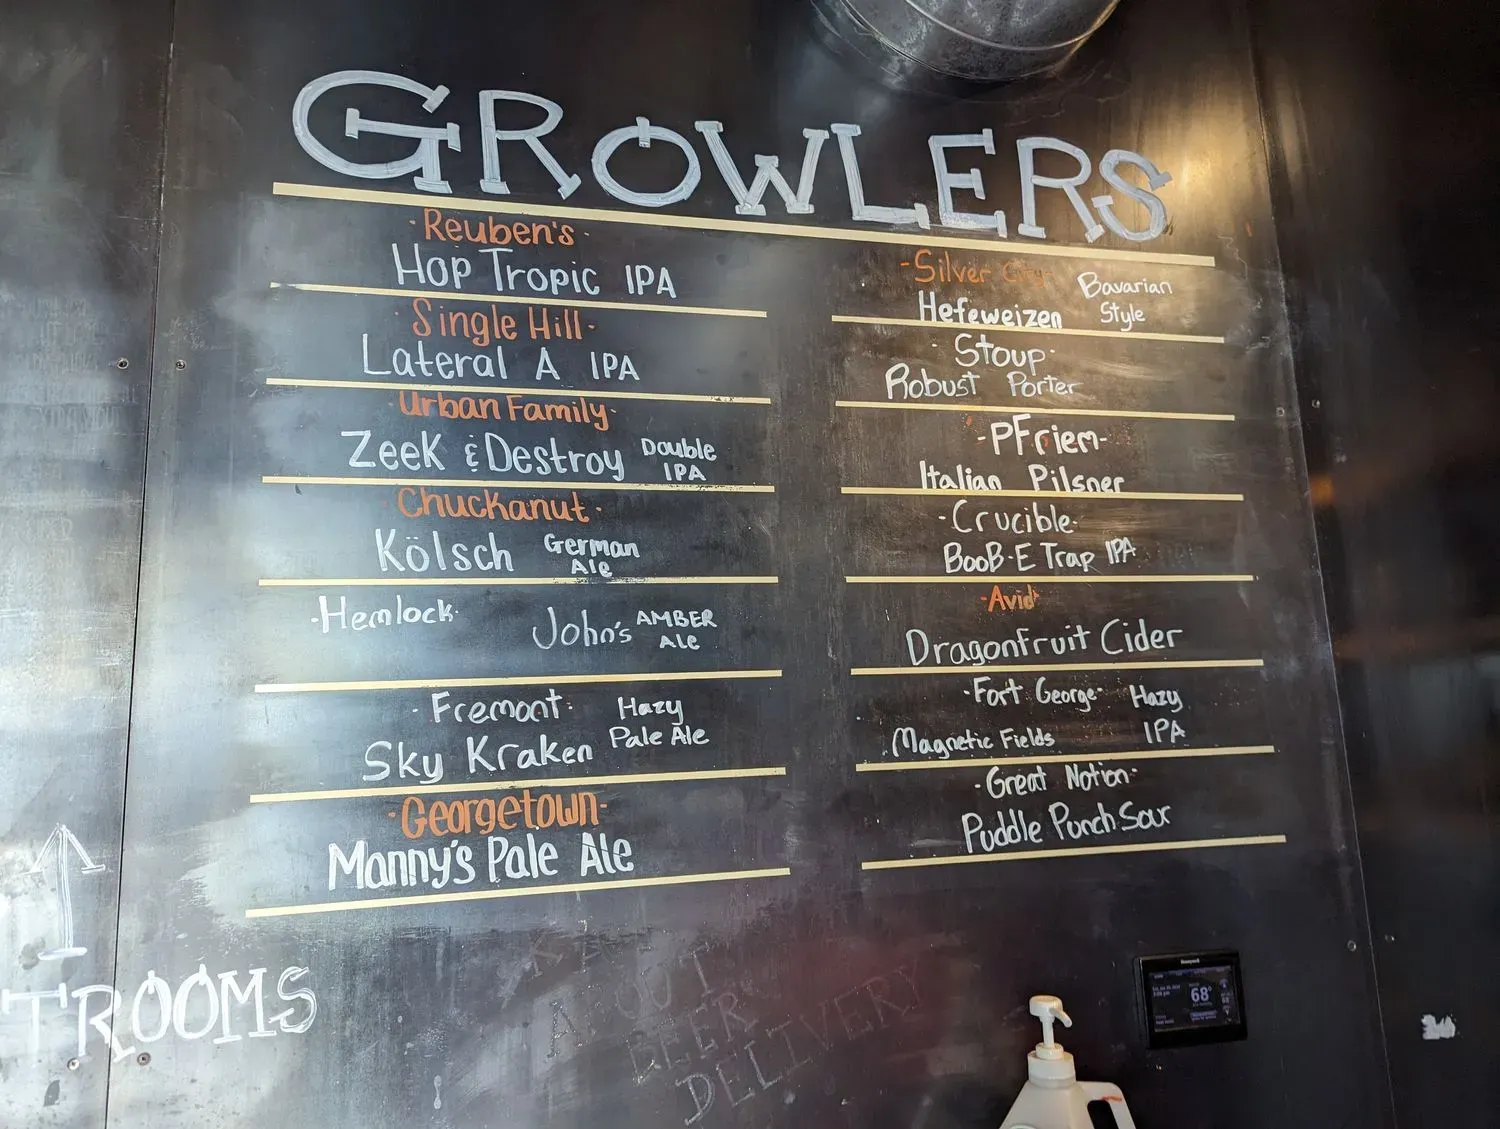 GROWLERS
·Reuben's·
Hop Tropic IPA
·Single Hill·
Lateral A IPA
Urban Family·
Zeek & Destroy Double
IPA
Chuckanut·
Kölsch German
Ale
·Hemlock· John's AMBER
ALE
·Fremont· Hazy
Sky Kraken Pale Ale
·Georgetown·
Manny's Pale Ale
-Silver City Bavarian
Hefeweizen Style
·Stoup·
Robust Porter
-PFriem-
Italian Pilsner
-Crucible-
BooB-E Trap IPA
-Avid-
Dragonfruit Cider
·Fort George· Hazy
Magnetic Fields IPA
·Great Notion·
Puddle Punch Sour
TROOMS
ABOUT
BEER
DELIVERY
Honeywell
68°